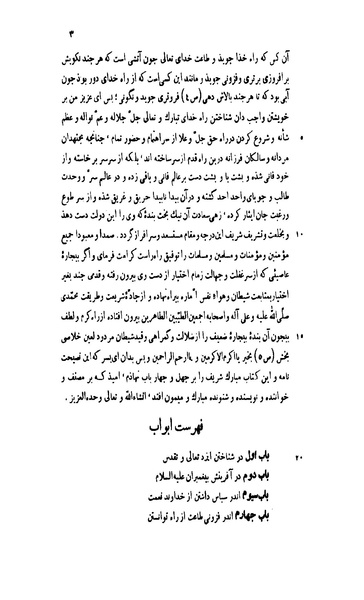 ۳
آن کس که راه خدا جوید و طاعت خدای تعالی چون آتشی است که هر چند نگونش
بر افروزی برتری و فزونی جوید و مانند این کسی است که از راه خدای دور بود چون
آبی بود که تا هر چند بالاش دهی (ص ٤) فروتری جوید و نگونی؛ پس ای عزیز من بر
خویشتن واجب دان شناختن راه خدای تبارك و تعالی جلّ جلاله و عمّ نواله و عظم
۵ شأنه و شروع کردن در راه حق جلّ و علا از سر اهتمام و حضور تمام، چنانچه مجتهدان
مردانه و سالکان فرزانه درین راه قدم از سر ساخته اند، بلکه از سر سر برخاسته و از
خود فانی شده و پشت پا و پشت دست بر عالم فانی و باقی زده و در عالم سرّ و وحدت
طالب و جویای واحد احد گشته و در آن بیدا ناپیدا حریق و غریق شده و از سر طوع
و رغبت جان ایثار کرده، زهی سعادت آن نیك بخت بندهٔ که وی را این دولت دست دهد
۱۰ و بخلعت و تشریف شریف این درجه و مقام مستسعد و سرافراز گردد. صمدا و معبودا جمیع
مؤمنین و مؤمنات و مسلمین و مسلمات را توفیق راه راست کرامت فرمای و اگر بیچارهٔ
عاصیئی که از سر غفلت و جهالت زمام اختیار از دست وی بیرون رفته و قدمی چند بغیر
اختیار بمتابعت شیطان و هواء نفس امّاره بیراه نهاده و از جادهٔ شریعت و طریقت محمّدی
صلّی الله علیه و علی آله و اصحابه اجمعین الطیّبین الطاهرین بیرون افتاده از راه کرم و لطف
۱۵ بیچون آن بندهٔ بیچارهٔ ضعیف را از ضلالت و گمراهی و قید شیطان مردود لعین خلاصی
بخش (ص ۵) بخیر یا اکرم الاکرمین و یا ارحم الراحمین و پس بدان ای پسر که این نصیحت
نامه و این کتاب مبارك شریف را بر چهل و چهار باب نهادم، امیذ که بر مصنف و
خواننده و نویسنده و شنونده مبارك و میمون افتد، انشاءالله و تعالی وحده العزیز.
فهرست ابواب
۲۰ باب اول در شناختن ایزد تعالی و تقدس
باب دوم در آفرینش پیغمبران علیه السلام
باب سیوم اندر سپاس داشتن از خداوند نعمت
باب چهارم اندر فزونی طاعت از راه توانستن